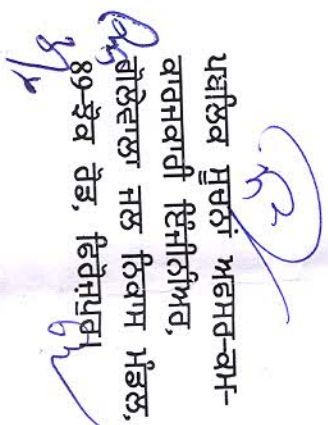 ਪਬਲਿਕ ਸੂਚਨਾਂ ਅਫਸਰ-ਕਮ-
ਕਾਰਜਕਾਰੀ ਇੰਜੀਨਿਅਰ,
ਗੋਲੇਵਾਲਾ ਜਲ ਨਿਕਾਸ ਮੰਡਲ,
89-ਕੈਂਪ ਰੋਡ, ਫਿਰੋਜ਼ਪੁਰ।